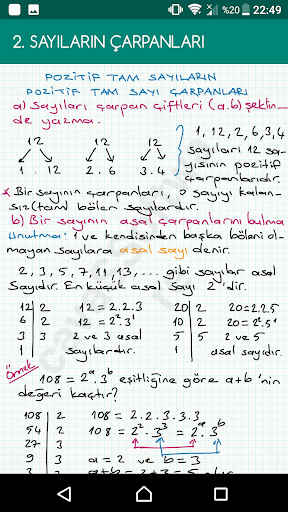 %20 22:49
2. SAYILARIN ÇARPANLARI
POZİTİF TAM SAYILARIN
POZİTİF TAM SAYI ÇARPANLARI
a) Sayıları çarpan çiftleri (a.b) şeklin-
de yazma.
12 12 12
1 . 12 2 . 6 3 . 4
1, 12, 2, 6, 3, 4
sayıları 12 sa-
yısının pozitif
çarpanlarıdır.
* Bir sayının çarpanları, o sayıyı kalan-
sız (tam) bölen sayılardır.
b) Bir sayının asal çarpanlarını bulma
Unutma: 1 ve kendisinden başka böleni ol-
mayan sayılara asal sayı denir.
2, 3, 5, 7, 11, 13, ... gibi sayılar asal
sayıdır. En küçük asal sayı 2'dir.
12 | 2 12 = 2.2.3 20 | 2 20 = 2.2.5
6 | 2 12 = 2².3¹ 10 | 2 20 = 2².5¹
3 | 3 2 ve 3 asal 5 | 5 2 ve 5
1 | sayılardır. 1 | asal sayıdır.
Örnek
108 = 2ᵃ.3ᵇ eşitliğine göre a+b'nin
değeri kaçtır?
108 | 2 108 = 2.2.3.3.3
54 | 2 108 = 2².3³ = 2ᵃ.3ᵇ
27 | 3
9 | 3 a = 2 ve b = 3
3 a+b = 2+3 = 5